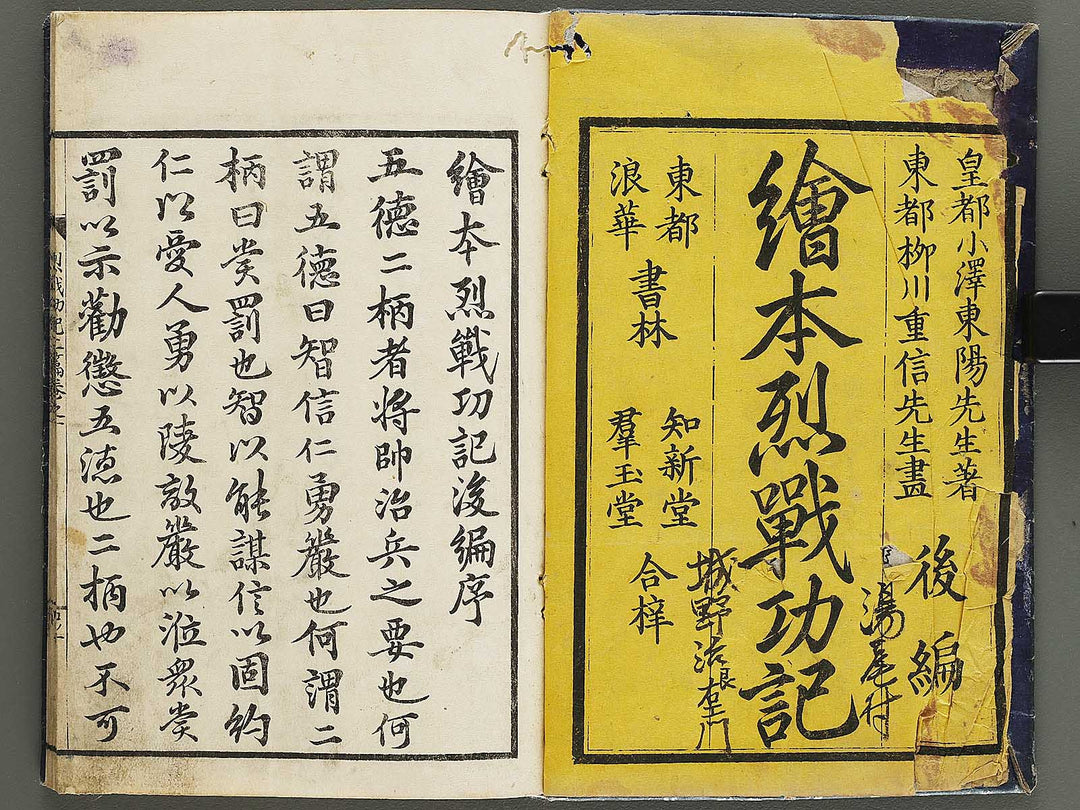 皇都小澤東陽先生著
東都柳川重信先生畫
後編
繪本烈戰功記
湯尾村
城野治良右門
東都
浪華
書林
知新堂
羣玉堂
合梓
繪本烈戰功記後編序
五德二柄者将帥治兵之要也何
謂五德曰智信仁勇嚴也何謂二
柄曰赏罰也智以能謀信以固約
仁以愛人勇以陵敵嚴以涖眾赏
罰以示勸懲五德也二柄也不可